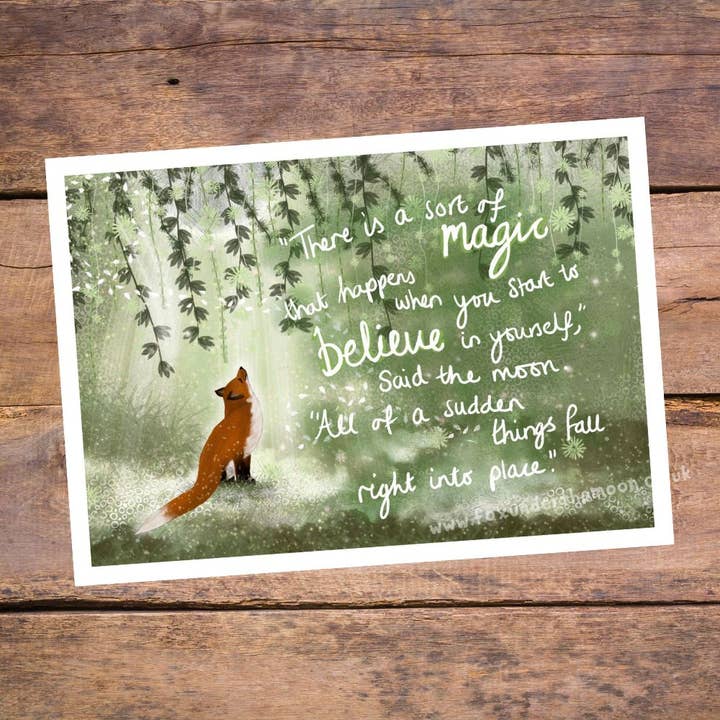 "There is a sort of
magic
that happens
when you start to
believe in yourself,"
Said the moon
"All of a sudden
things fall
right into place."
www.foxunderthemoon.co.uk